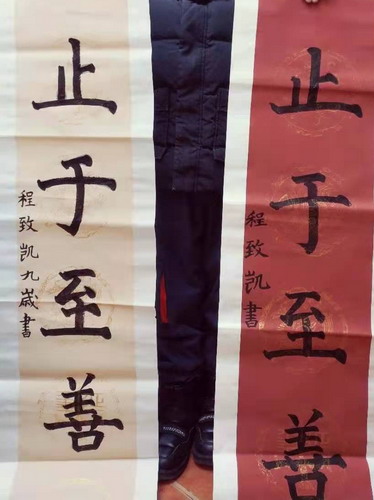 止于至善
程致凯九歲書
止于至善
程致凯書